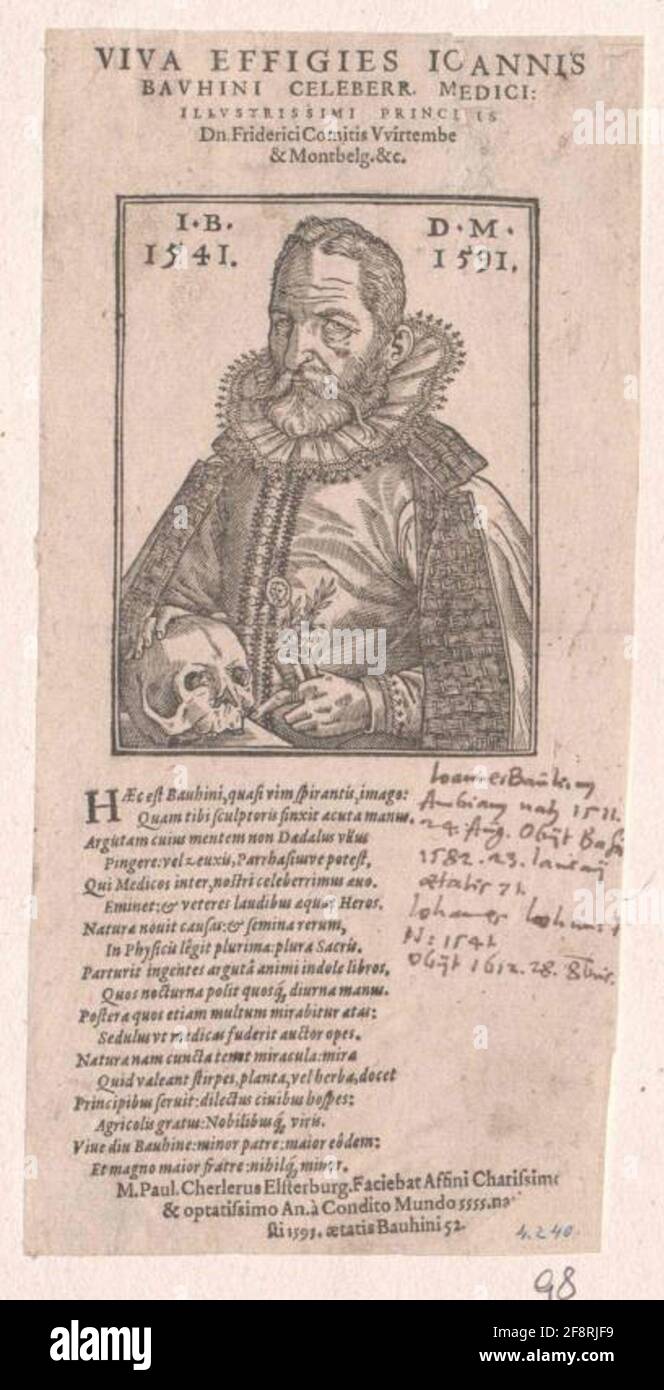 VIVA EFFIGIES IOANNIS
BAVHINI CELEBERR. MEDICI:
ILLVSTRISSIMI PRINCI IS
Dn. Friderici Comitis VVirtembe
& Montbelg. &c.
I. B. D. M.
1541. 1591.
HÆc est Bauhini, quasi vim spirantis, imago:
Quam tibi sculptoris finxit acuta manus.
Argutam cuius mentem non Dædalus vllus
Pingere: vel zeuxis, Parrhasiusve potest,
Qui Medicos inter, nostri celeberrimus æuo.
Eminet: & veteres laudibus æquat Heros.
Natura nouit causas: & semina rerum,
In Physicis legit plurima: plura Sacris.
Parturit ingentes argutâ animi indole libros,
Quos nocturna polit quosq, diurna manus.
Postera quos etiam multum mirabitur ætas:
Sedulus vt medicas fuderit auctor opes.
Natura nam cuncta tenet miracula: mira
Quid valeant stirpes, planta, vel herba, docet
Principibus seruit: dilectus ciuibus hospes:
Agricolis gratus: Nobilibusq, viris.
Viue diu Bauhine: minor patre: maior eôdem:
Et magno maior fratre: nihilq, minor.
M. Paul. Cherlerus Elsterburg. Faciebat Affini Charissim
& optatissimo An. à Condito Mundo 5555. na
sti 1593. ætatis Bauhini 52.
Ioannes Bauhin
Ambian natus 1511.
24. Aug. Obijt Bas
1582. 23. Ianuarij
ætatis 71.
Iohannes
N: 1541
Obijt 1612. 28. 8bris.
4.2.40.
98
alamy
Image ID: 2F8RJF9
www.alamy.com